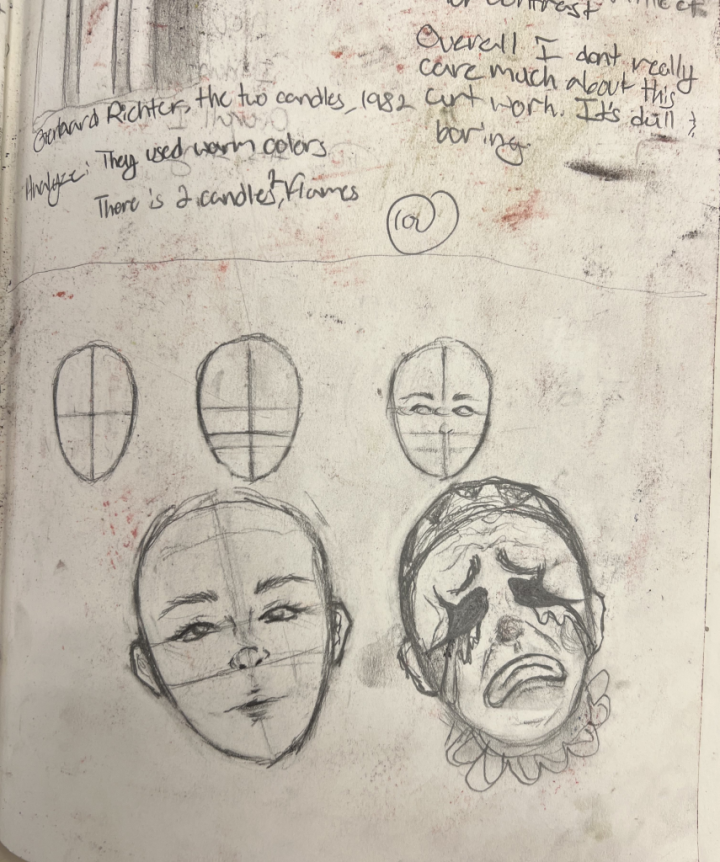 contrast
Overall I dont really
care much about this
art work. It's dull &
boring.
Gerbard Richter, the two candles, 1982
Analyze: They used warm colors
There is 2 candles, 2 flames